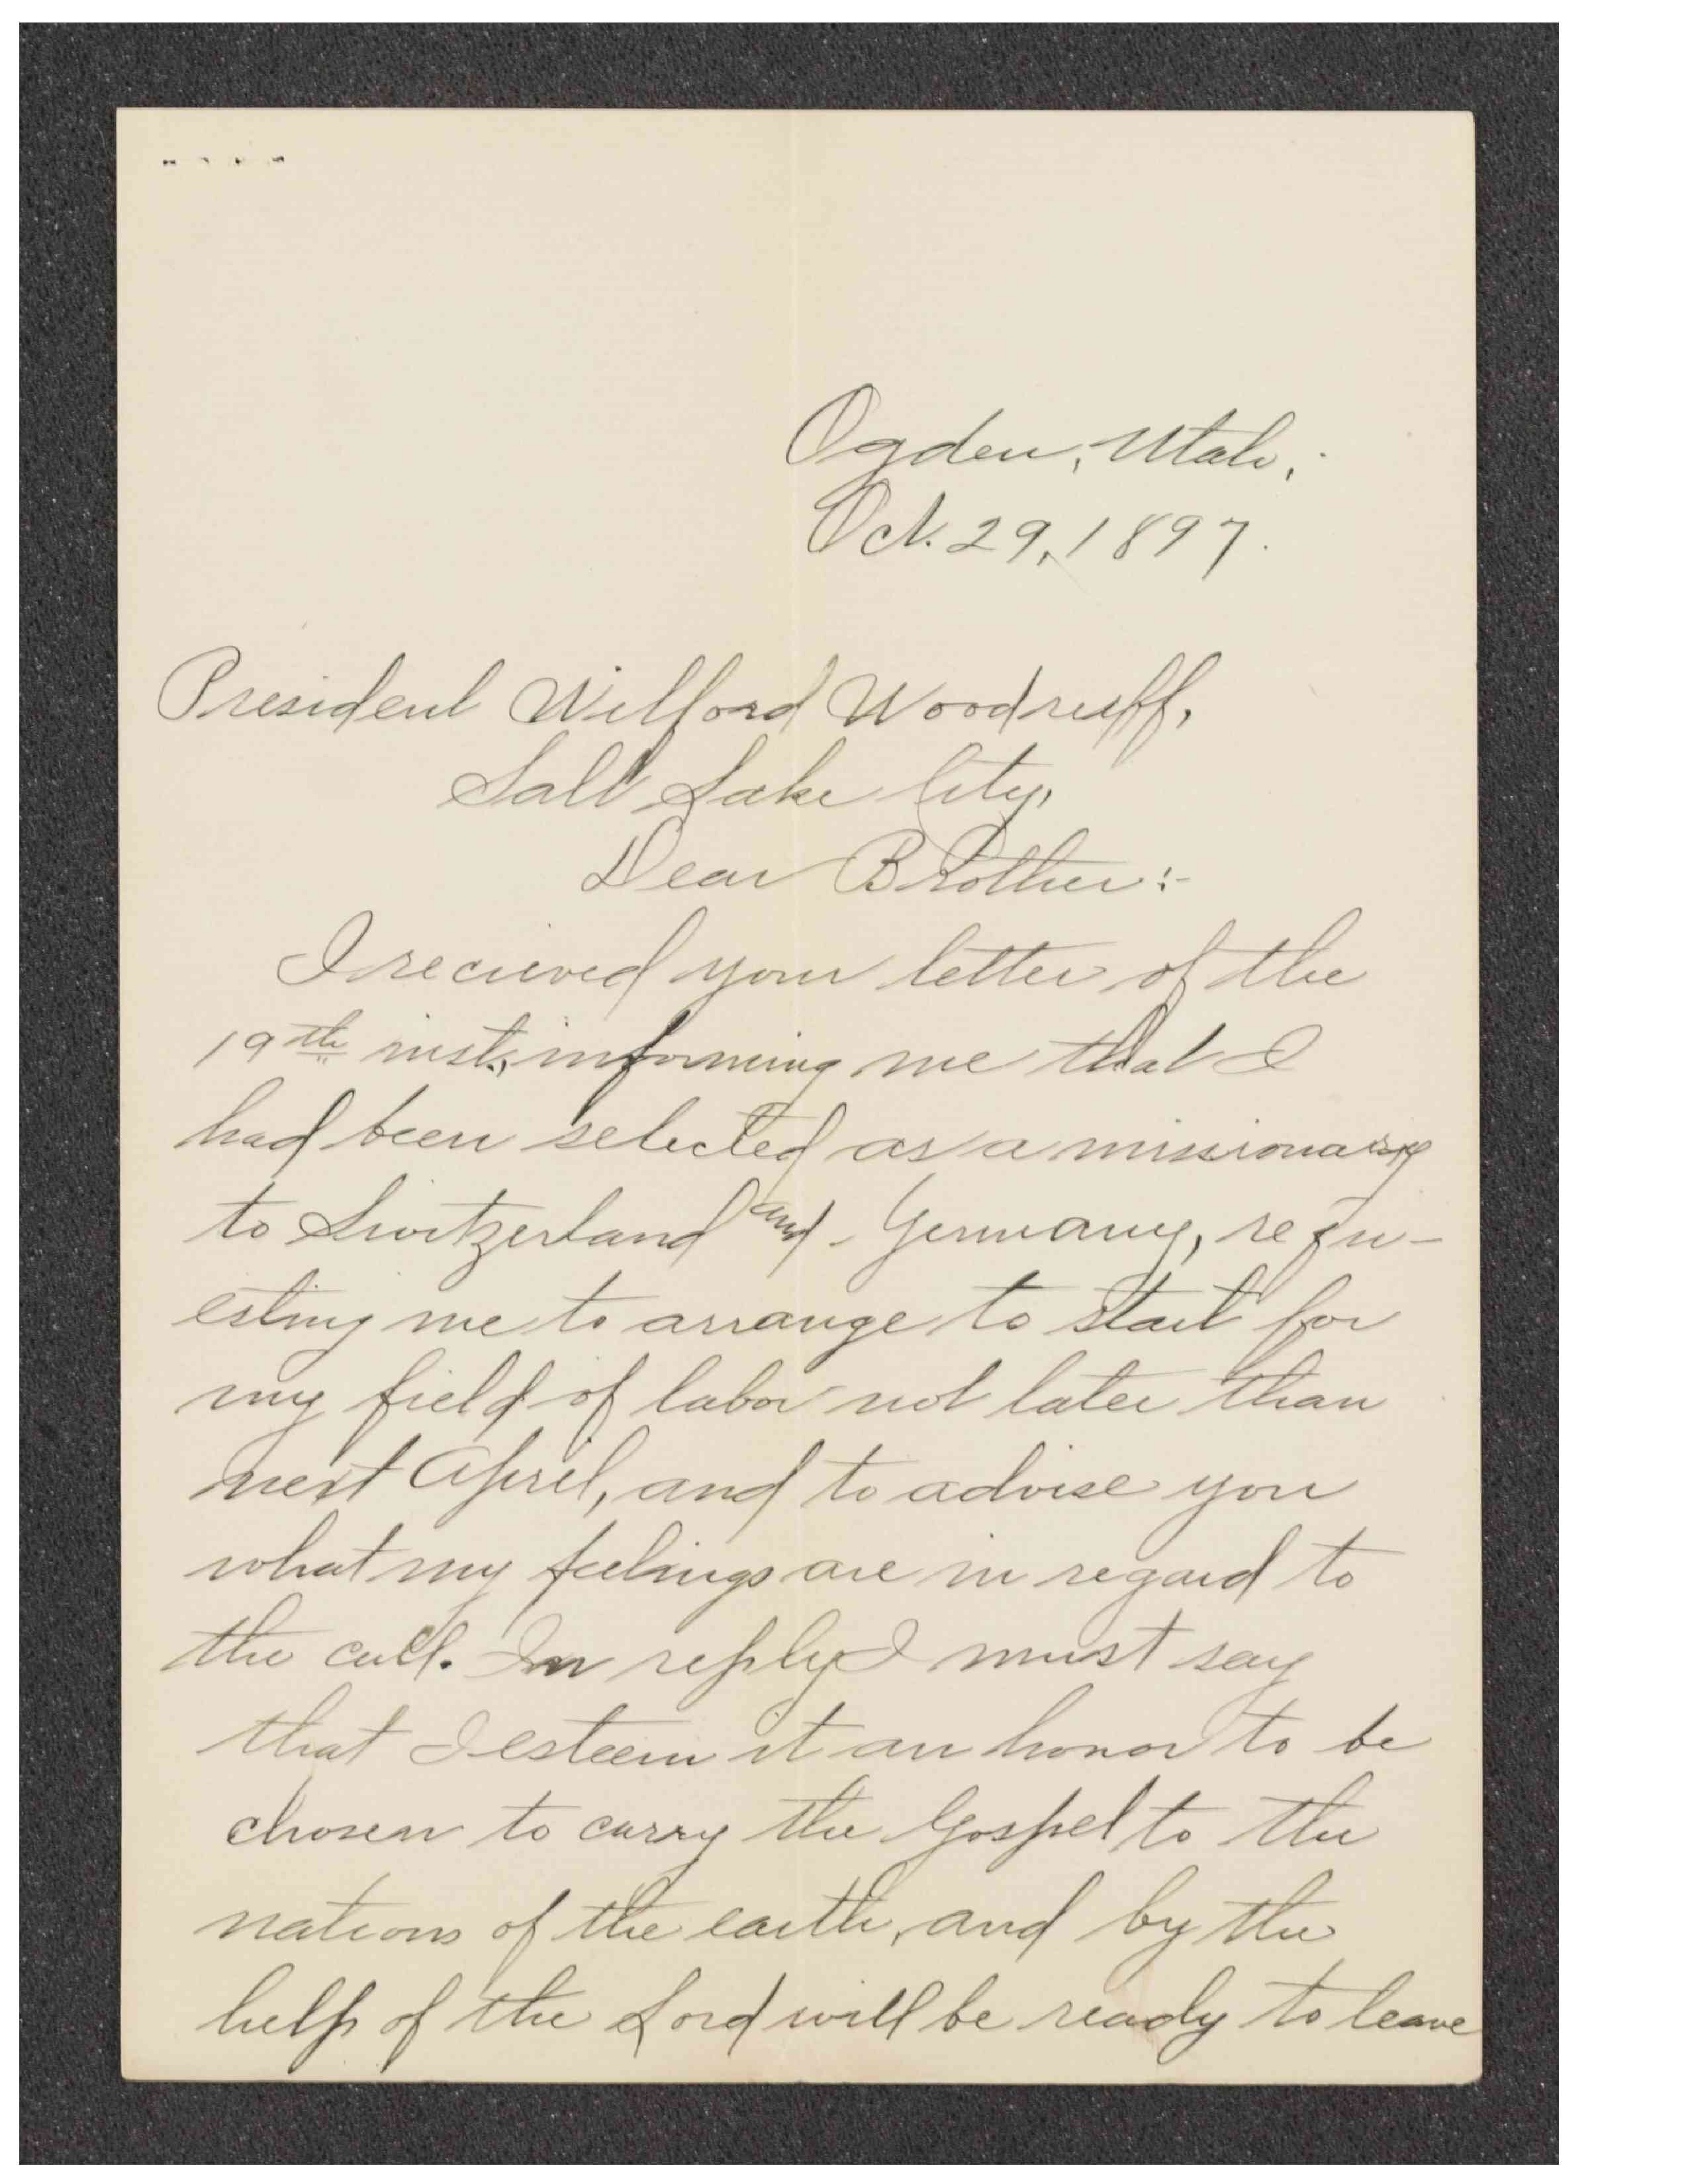 Ogden, Utah,
Oct. 29, 1897.
President Wilford Woodruff,
Salt Lake City,
Dear Brother:-
I recieved your letter of the
19th inst., informing me that I
had been selected as a missionary
to Switzerland and - Germany, requ-
esting me to arrange to start for
my field of labor not later than
next April, and to advise you
what my feelings are in regard to
the call. In reply I must say
that I esteem it an honor to be
chosen to carry the Gospel to the
nations of the earth, and by the
help of the Lord will be ready to leave